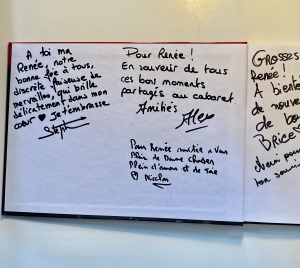 A toi ma
Renée, notre
bonne fée à tous,
discrète faiseuse de
merveilles, qui brille
délicatement dans mon
coeur ♥ Je t'embrasse
Steph
Pour Renée !
En souvenir de tous
ces bons moments
partagés au cabaret.
Amitiés
Alex
Pour Renée
Plein de
Plein d'amour et de joie
Nicolas
GROSSES
Renée !
A bientô
de nouve
de bo
BRICE
pour
ton souri